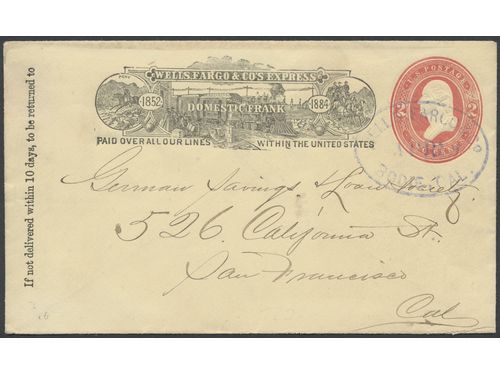 If not delivered within 10 days, to be returned to
WELLS, FARGO & CO'S EXPRESS
1852 DOMESTIC FRANK 1884
PAID OVER ALL OUR LINES WITHIN THE UNITED STATES
U.S. POSTAGE
2 2
WELLS FARGO
BODIE, CAL.
German Savings & Loan Society
526 California St.
San Francisco
Cal